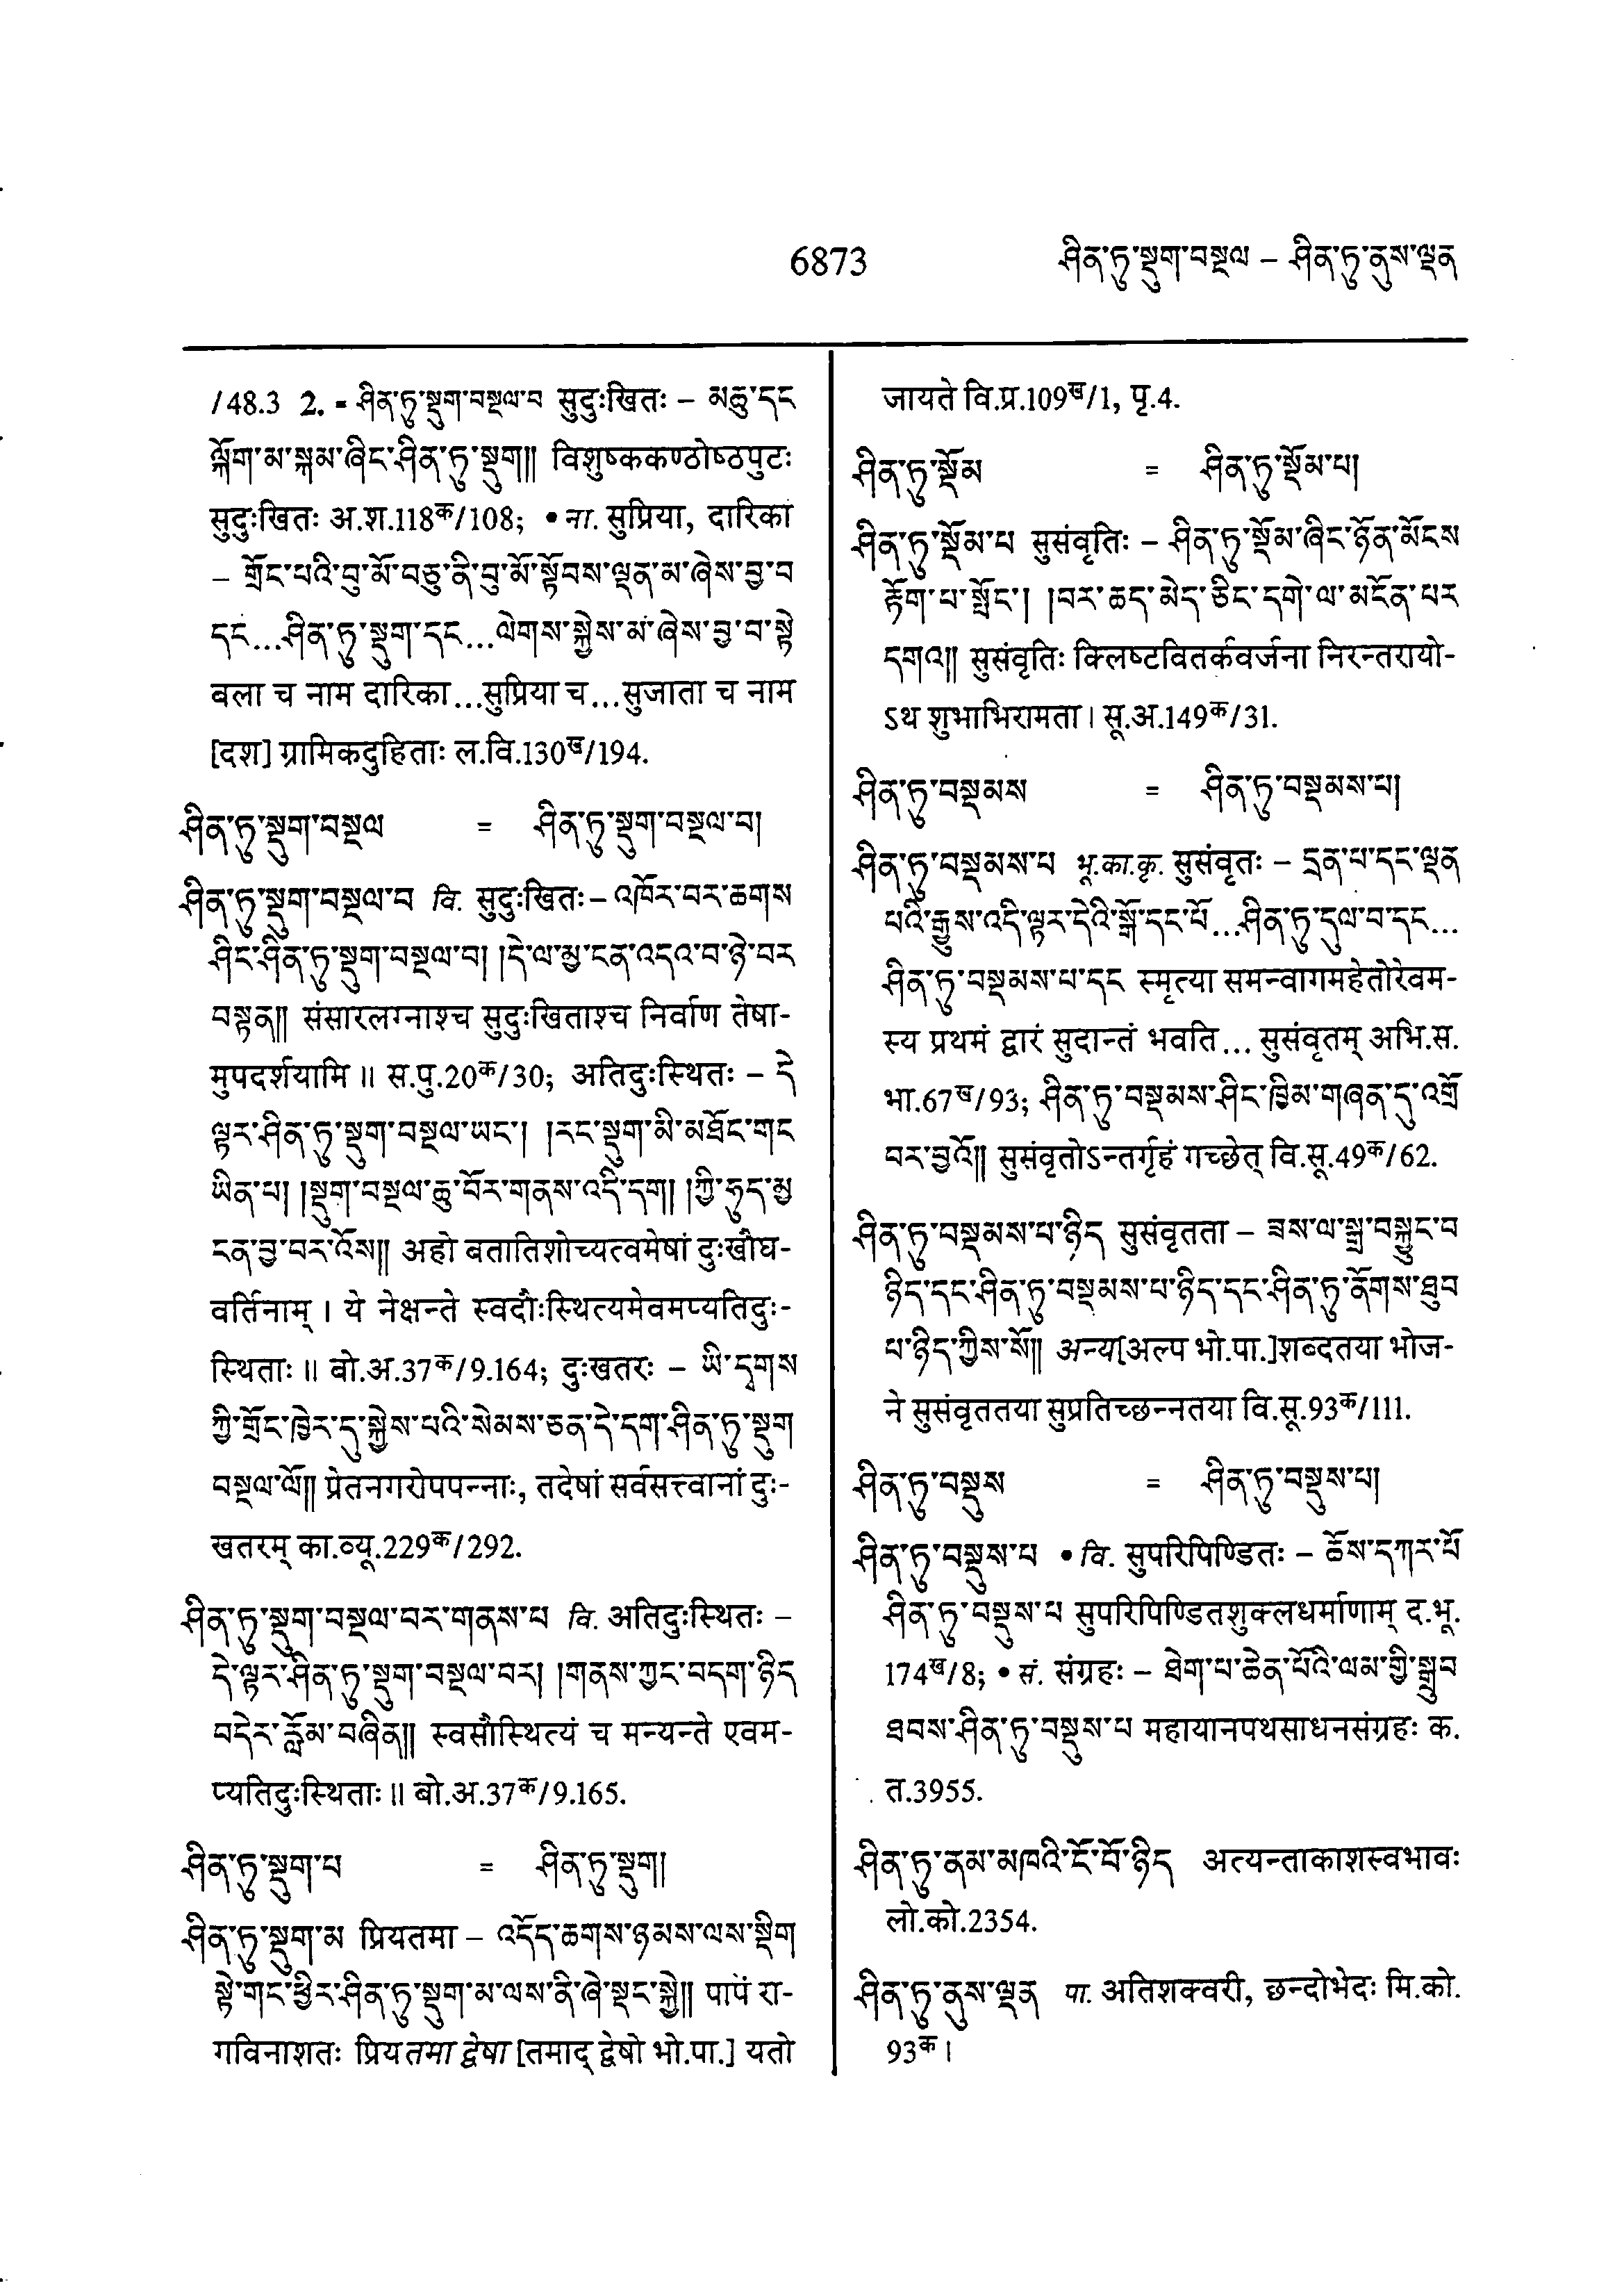 6873 ཤིན་ཏུ་སྡུག་བསྔལ – ཤིན་ཏུ་ནུས་ལྡན
/48.3 2. = ཤིན་ཏུ་སྡུག་བསྔལ་བ सुदुःखितः – མཆུ་དང
ལྐོག་མ་སྐམ་ཞིང་ཤིན་ཏུ་སྡུག༎ विशुष्ककण्ठोष्ठपुटः
सुदुःखितः अ.श.118क/108; • ना. सुप्रिया, दारिका
– གྲོང་པའི་བུ་མོ་བཅུ་ནི་བུ་མོ་སྟོབས་ལྡན་མ་ཞེས་བྱ་བ
དང...ཤིན་ཏུ་སྡུག་དང...ལེགས་སྐྱེས་མ་ཞེས་བྱ་བ་སྟེ
बला च नाम दारिका...सुप्रिया च...सुजाता च नाम
[दश] ग्रामिकदुहिताः ल.वि.130ख/194.
ཤིན་ཏུ་སྡུག་བསྔལ = ཤིན་ཏུ་སྡུག་བསྔལ་བ།
ཤིན་ཏུ་སྡུག་བསྔལ་བ वि. सुदुःखितः – འཁོར་བར་ཆགས
ཤིང་ཤིན་ཏུ་སྡུག་བསྔལ་བ། །དེ་ལ་མྱ་ངན་འདའ་བ་ཉེ་བར
བསྟན༎ संसारलग्नाश्च सुदुःखिताश्च निर्वाण तेषा-
मुपदर्शयामि ॥ स.पु.20क/30; अतिदुःस्थितः – དེ
ལྟར་ཤིན་ཏུ་སྡུག་བསྔལ་ཡང་། །རང་སྡུག་མི་མཐོང་གང
ཡིན་པ། །སྡུག་བསྔལ་ཆུ་བོར་གནས་འདི་དག། །ཀྱི་ཧུད་མྱ
ངན་བྱ་བར་འོས༎ अहो बतातिशोच्यत्वमेषां दुःखौघ-
वर्तिनाम् । ये नेक्षन्ते स्वदौःस्थित्यमेवमप्यतिदुः-
स्थिताः ॥ बो.अ.37क/9.164; दुःखतरः – ཡི་དྭགས
ཀྱི་གྲོང་ཁྱེར་དུ་སྐྱེས་པའི་སེམས་ཅན་དེ་དག་ཤིན་ཏུ་སྡུག
བསྔལ་ལོ༎ प्रेतनगरोपपन्नाः, तदेषां सर्वसत्त्वानां दुः-
खतरम् का.व्यू.229क/292.
ཤིན་ཏུ་སྡུག་བསྔལ་བར་གནས་པ वि. अतिदुःस्थितः –
དེ་ལྟར་ཤིན་ཏུ་སྡུག་བསྔལ་བར། །གནས་ཀྱང་བདག་ཉིད
བདེར་རློམ་བཞིན༎ स्वसौस्थित्यं च मन्यन्ते एवम-
प्यतिदुःस्थिताः ॥ बो.अ.37क/9.165.
ཤིན་ཏུ་སྡུག་པ = ཤིན་ཏུ་སྡུག།
ཤིན་ཏུ་སྡུག་མ प्रियतमा – འདོད་ཆགས་ཉམས་ལས་སྡིག
སྟེ་གང་ཕྱིར་ཤིན་ཏུ་སྡུག་མ་ལས་ནི་ཞེ་སྡང་སྐྱེ༎ पापं रा-
गविनाशतः प्रियतमा द्वेषा [तमाद् द्वेषो भो.पा.] यतो
जायते वि.प्र.109ख/1, पृ.4.
ཤིན་ཏུ་སྡོམ = ཤིན་ཏུ་སྡོམ་པ།
ཤིན་ཏུ་སྡོམ་པ सुसंवृतिः – ཤིན་ཏུ་སྡོམ་ཞིང་ཉོན་མོངས
རྟོག་པ་སྤོང་། །བར་ཆད་མེད་ཅིང་དགེ་ལ་མངོན་པར
དགའ༎ सुसंवृतिः क्लिष्टवितर्कवर्जना निरन्तरायो-
ऽथ शुभाभिरामता । सू.अ.149क/31.
ཤིན་ཏུ་བསྡམས = ཤིན་ཏུ་བསྡམས་པ།
ཤིན་ཏུ་བསྡམས་པ भू.का.कृ. सुसंवृतः – དྲན་པ་དང་ལྡན
པའི་རྒྱུས་འདི་ལྟར་དེའི་སྒོ་དང་པོ...ཤིན་ཏུ་དུལ་བ་དང...
ཤིན་ཏུ་བསྡམས་པ་དང स्मृत्या समन्वागमहेतोरेवम-
स्य प्रथमं द्वारं सुदान्तं भवति... सुसंवृतम् अभि.स.
भा.67ख/93; ཤིན་ཏུ་བསྡམས་ཤིང་ཁྱིམ་གཞན་དུ་འགྲོ
བར་བྱའོ༎ सुसंवृतोऽन्तर्गृहं गच्छेत् वि.सू.49क/62.
ཤིན་ཏུ་བསྡམས་པ་ཉིད सुसंवृतता – ཟས་ལ་སྒྲ་བསྐྱུང་བ
ཉིད་དང་ཤིན་ཏུ་བསྡམས་པ་ཉིད་དང་ཤིན་ཏུ་ནོགས་ཐུབ
པ་ཉིད་ཀྱིས་སོ༎ अन्य[अल्प भो.पा.]शब्दतया भोज-
ने सुसंवृततया सुप्रतिच्छन्नतया वि.सू.93क/111.
ཤིན་ཏུ་བསྡུས = ཤིན་ཏུ་བསྡུས་པ།
ཤིན་ཏུ་བསྡུས་པ • वि. सुपरिपिण्डितः – ཆོས་དཀར་པོ
ཤིན་ཏུ་བསྡུས་པ सुपरिपिण्डितशुक्लधर्माणाम् द.भू.
174ख/8; • सं. संग्रहः – ཐེག་པ་ཆེན་པོའི་ལམ་གྱི་སྒྲུབ
ཐབས་ཤིན་ཏུ་བསྡུས་པ महायानपथसाधनसंग्रहः क.
त.3955.
ཤིན་ཏུ་ནམ་མཁའི་ངོ་བོ་ཉིད अत्यन्ताकाशस्वभावः
लो.को.2354.
ཤིན་ཏུ་ནུས་ལྡན पा. अतिशक्वरी, छन्दोभेदः मि.को.
93क ।